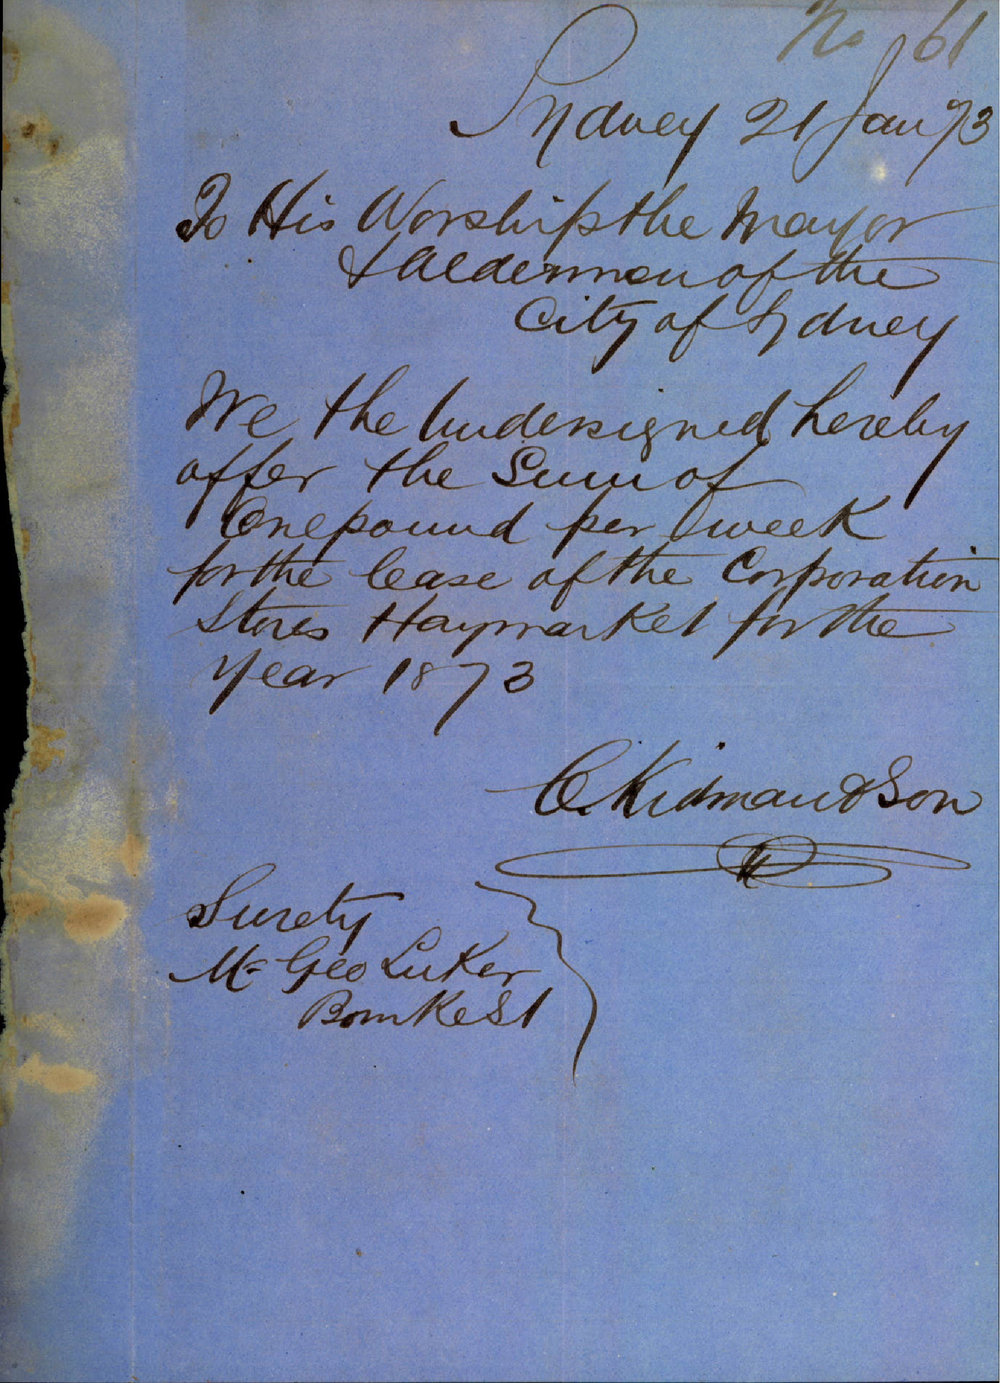 No 61
Sydney 21 Jan 73
To His Worship the Mayor
& Aldermen of the
City of Sydney
We the Undersigned hereby
offer the Sum of
One pound per week
for the lease of the Corporation
Stores Haymarket for the
year 1873
C. Kidman & Son
Surety
Mr Geo Luker
Bourke St